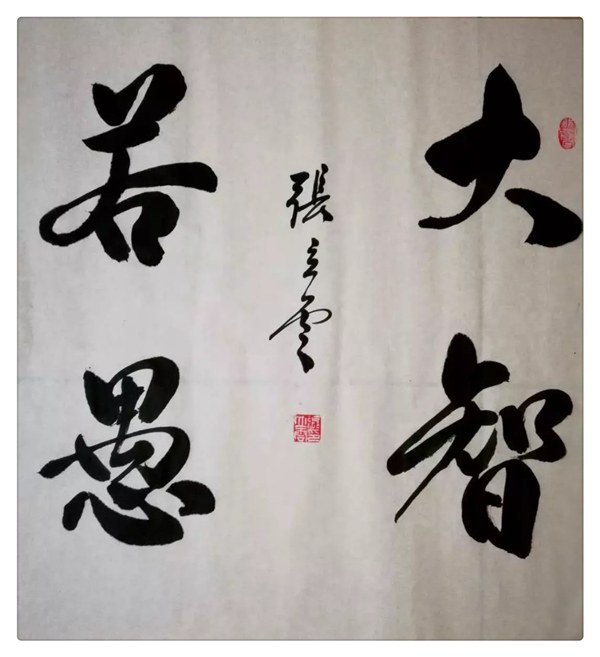 大智
若愚
張立雲